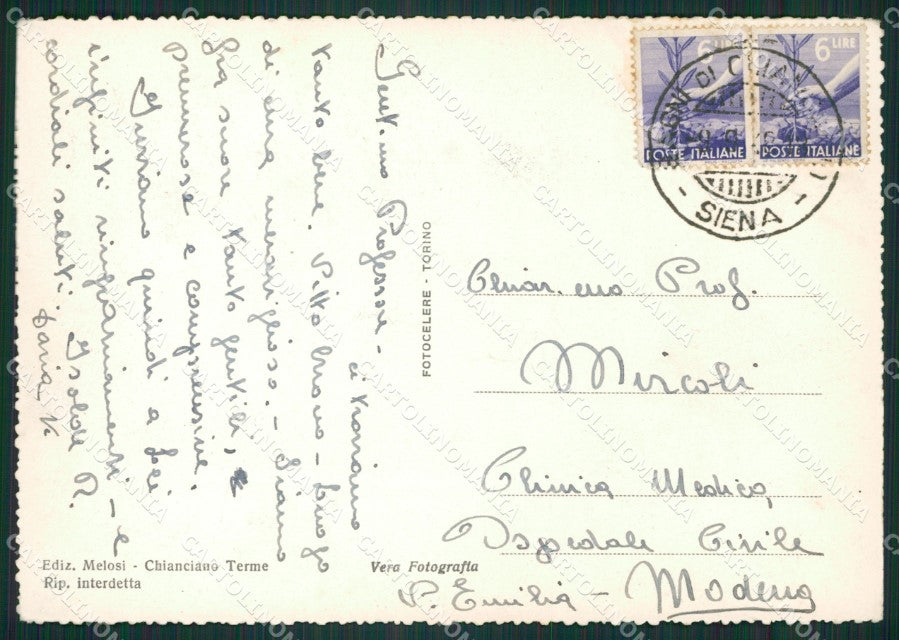 Gent.mo Professore - ci troviamo
tanto bene. Vitto buono - luogo
di cura meraviglioso. - Siamo
suore tanto gentili,
premurose e comprensive.
Inviamo quindi a Lei
infiniti ringraziamenti - e
cordiali saluti. Isolde R.
Daria V.
6 LIRE
POSTE ITALIANE
6 LIRE
POSTE ITALIANE
BAGNI DI CHIANCIANO
SIENA
FOTOCELERE - TORINO
Chiar.mo Prof.
Mircoli
Clinica Medica
Ospedale Civile
P. Emilia - Modena
Ediz. Melosi - Chianciano Terme
Rip. interdetta
Vera Fotografia
CARTOLINOMANIA